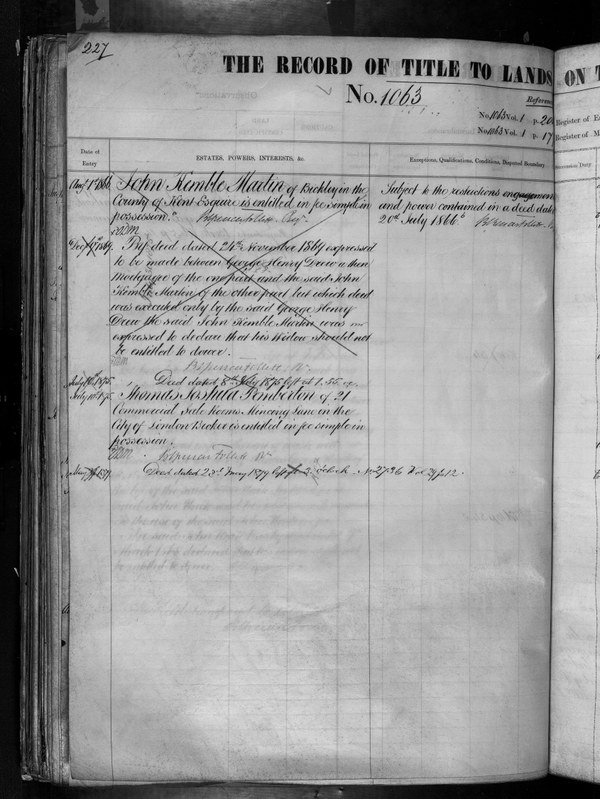 227
THE RECORD OF TITLE TO LANDS ON T
No. 1063
Referenc
No. 1063 Vol. 1 p. 20
No. 1063 Vol. 1 p. 17
Register of E
Register of M
Date of
Entry
ESTATES, POWERS, INTERESTS, &c.
Exemptions, Qualifications, Conditions, Disputed Boundary
Augt 1st 1866
John Kemble Martin of Bickley in the
County of Kent Esquire is entitled in fee simple in
possession.
Subject to the restrictions engagement
and power contained in a deed dated
20th July 1866
By deed dated 24th November 1869 expressed
to be made between George Henry Drew a then
Mortgagee of the one part and the said John
Kemble Martin of the other part but which deed
was executed only by the said George Henry
Drew the said John Kemble Martin was
expressed to declare that his Widow should not
be entitled to dower.
July 1875
Deed dated 8th July 1875 left at 1.55
July 10th 1875
Thomas Joshua Pemberton of 21
Commercial Sale Rooms Mincing Lane in the
City of London Broker is entitled in fee simple in
possession.
May 1877
Deed dated 23d May 1877 left